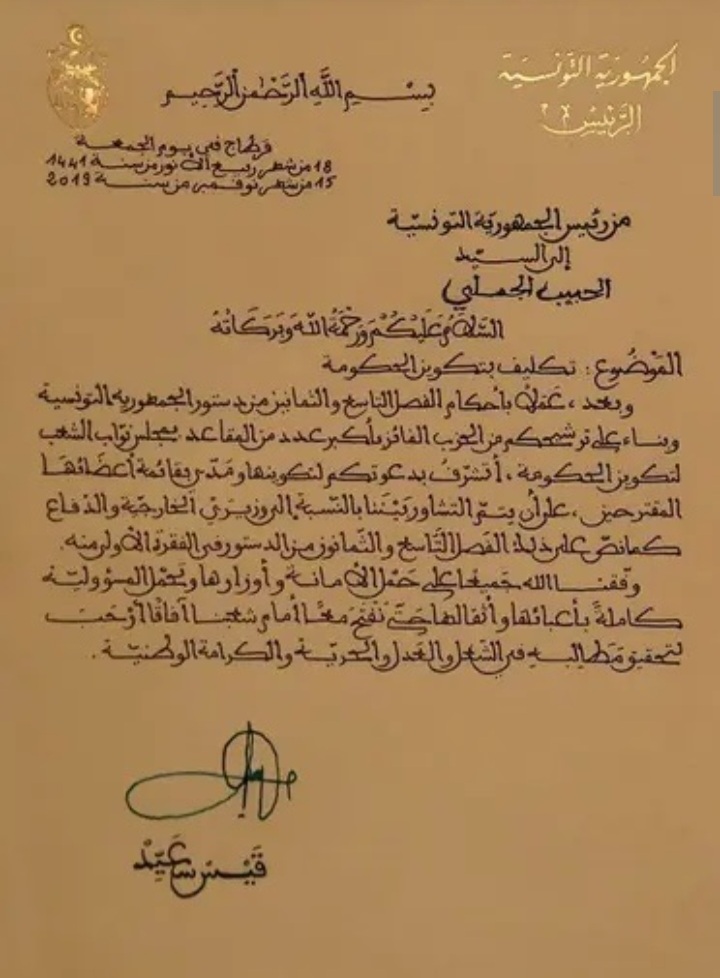 الجمهورية التونسية
الرئيس
بسم الله الرحمٰن الرحيم
قرطاج في يوم الجمعة
18 من شهر ربيع الأنور من سنة 1441
15 من شهر نوفمبر من سنة 2019
من رئيس الجمهورية التونسيّة
إلى السيّد
الحبيب الجملي
السَّلامُ عَلَيْكُمْ وَرَحْمَةُ اللهِ وَبَرَكَاتُهُ
المَوْضُوع : تكليف بتكوين الحكومة
وبعد ، عَمَلاً بأحكام الفصل التاسع والثمانين من دستور الجمهورية التونسية
وبناء على ترشيحكم من الحزب الفائز بأكبر عدد من المقاعد بمجلس نوّاب الشعب
لتكوين الحكومة ، أتشرّف بدعوتكم لتكوينها ومَدّي بقائمة أعضَائهَا
المقترحين ، على أن يتمّ التشاور بَيْننا بالنّسبة إلى وزيريْ الخارجيّة والدّفاع
كما نصّ على ذلك الفصل التّاسع والثّمانون من الدستور في الفقرة الأولى منه.
وفّقنا الله جَميعًا على حَمْل الأمانة وأوزارها وتحمّل المسؤوليّة
كاملةً بأعبائها وأثقالها حَتّى نَفْتَحَ معًا أمام شعبنا آفَاقًا أرْحَبَ
لتحقيق مَطالبه في الشّغل والعَدل والحريّة والكرامة الوطنيّة .
قَيْس سَعَيِّدْ